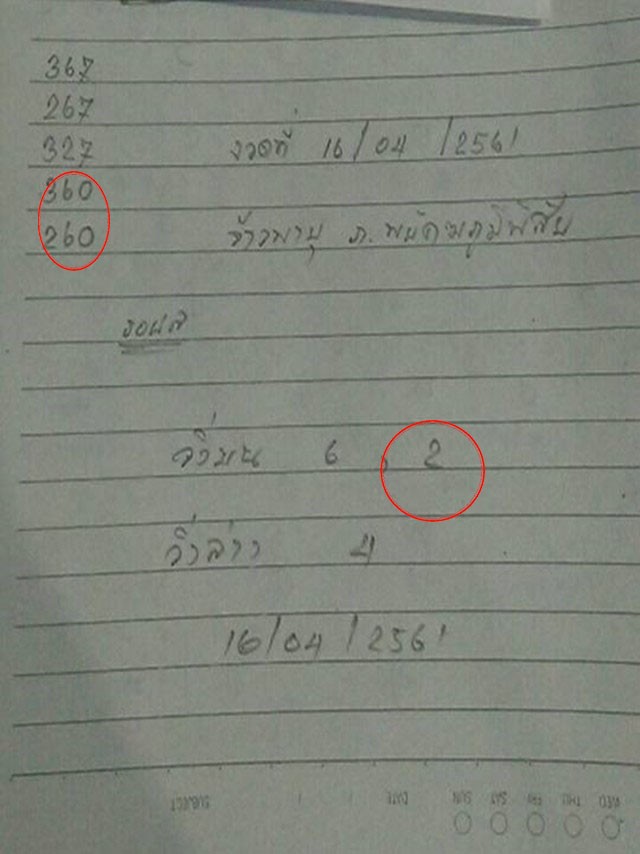 367
267
327 งวดที่ 16/04/2561
360
260 จ้าวพายุ ภ.พยัคฆภูมิพิสัย
รอผล
วิ่งบน 6 , 2
วิ่งล่าง 4
16/04/2561
WED THU FRI SAT SUN DATE / / SUBJECT